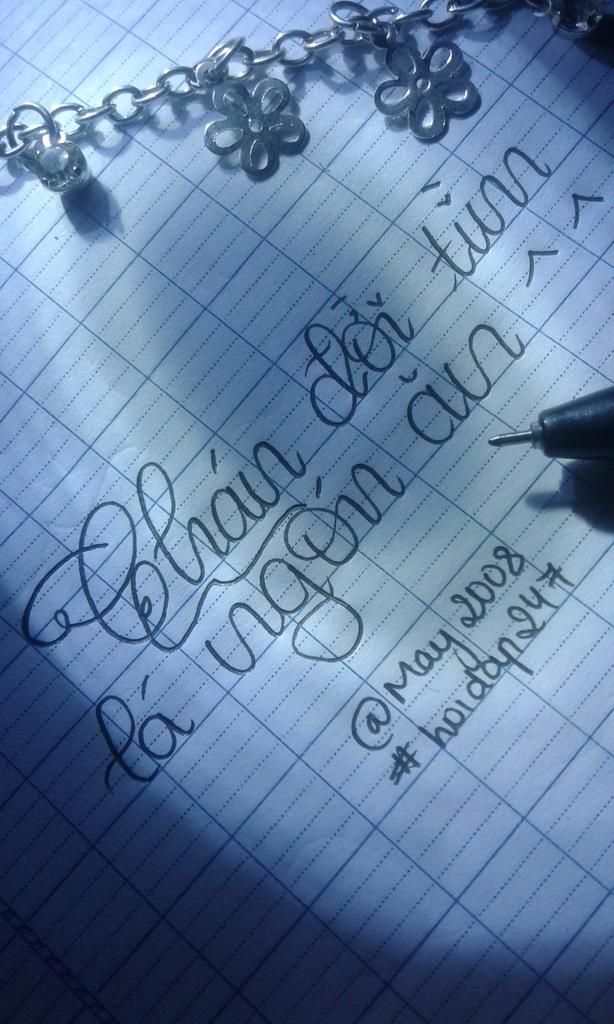 Chán đời từn
lá ngón ăn ^ ^
@May2008
#hoidap247